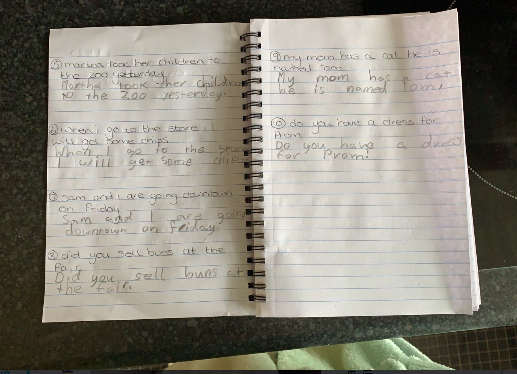 ⑤ martha took her children to
the zoo yesterday
Martha took her children
to the zoo yesterday.
⑥ when I go to the store, I
will get some chips
When I go to the store
I will get some chips
⑦ Sam and I are going downtown
on Friday
Sam and I are going
downtown on Friday
⑧ did you sell buns at the
fair
Did you sell buns at
the fair.
⑨ my mom has a cat he is
named Tom.
My mom has a cat
he is named Tom.
⑩ do you have a dress for
Prom
Do you have a dress
for Prom?